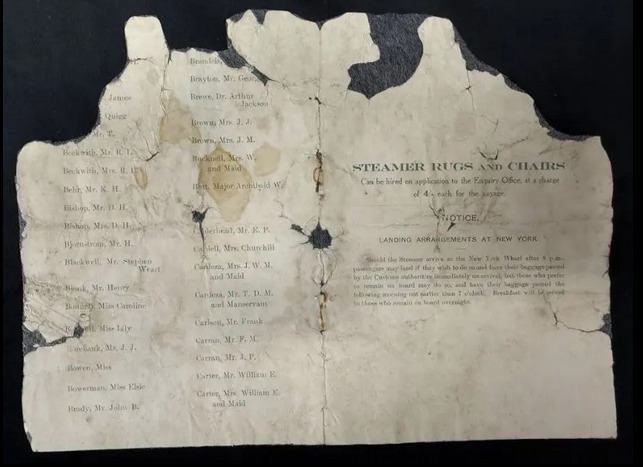 James
Quigg
Mr. T.
Beckwith, Mr. R. L.
Beckwith, Mrs. R. L.
Behr, Mr. K. H.
Bishop, Mr. D. H.
Bishop, Mrs. D. H.
Bjornstrom, Mr. H.
Blackwell, Mr. Stephen
Weart
Blank, Mr. Henry
Bonnell, Miss Caroline
Miss Lily
Mr. J. J.
Bowen, Miss
Bowerman, Miss Elsie
Brady, Mr. John B.
Brandeis,
Brayton, Mr. Geor
Brewe, Dr. Arthur
Jackson
Brown, Mrs. J. J.
Brown, Mrs. J. M.
Bucknell, Mrs. W.
and Maid
Butt, Major Archibald W.
Calderhead, Mr. E. P.
Cardell, Mrs. Churchill
Cardeza, Mrs. J. W. M.
and Maid
Cardeza, Mr. T. D. M.
and Manservant
Carlson, Mr. Frank
Carran, Mr. F. M.
Carran, Mr. J. P.
Carter, Mr. William E.
Carter, Mrs. William E.
and Maid
STEAMER RUGS AND CHAIRS
Can be hired on application to the Enquiry Office, at a charge
of 4/- each for the voyage.
NOTICE.
LANDING ARRANGEMENTS AT NEW YORK.
Should the Steamer arrive at the New York Wharf after 8 p.m.,
passengers may land if they wish to do so and have their baggage passed
by the Customs authorities immediately on arrival, but those who prefer
to remain on board may do so, and have their baggage passed the
following morning not earlier than 7 o'clock. Breakfast will be served
to those who remain on board overnight.